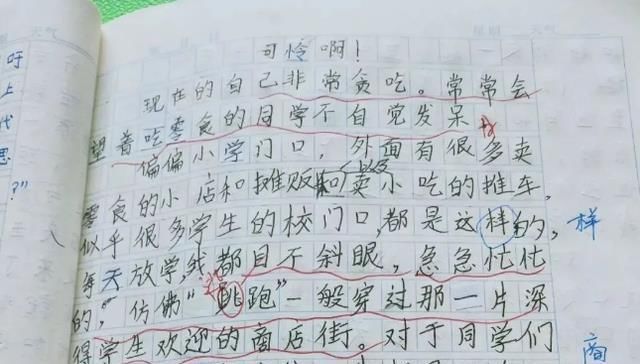 可怜啊！
现在的自己非常贪吃。常常会
望着吃零食的同学不自觉发呆
偏偏小学门口，外面有很多卖
零食的小店和摊贩以及卖小吃的推车，
似乎很多学生的校门口，都是这样的，
样
每天放学，我都目不斜眼，急急忙忙
的，仿佛“逃跑”一般穿过那一片深
得学生欢迎的商店街。对于同学们
商
吁
上
代
思
？”